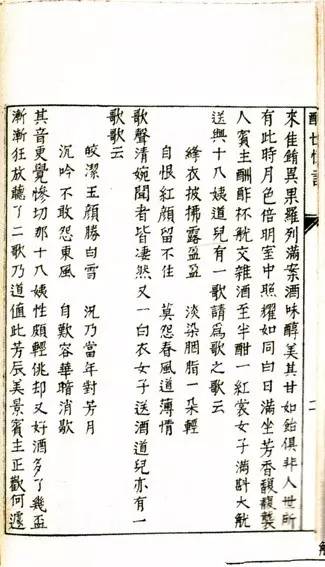 來佳餚異果羅列滿案酒味醇美其甘如飴俱非人世所
有此時月色倍明室中照耀如同白日滿坐芳香馥馥襲
人賓主酬酢杯觥交雜酒至半酣一紅裳女子滿斟大觥
送與十八姨道兒有一歌請爲歌之歌云
絳衣披拂露盈盈 淡染胭脂一朶輕
自恨紅顔留不住 莫怨春風道薄情
歌聲清婉聞者皆淒然又一白衣女子送酒道兒亦有一
歌歌云
皎潔玉顔勝白雪 況乃當年對芳月
沉吟不敢怨東風 自歎容華暗消歇
其音更覺慘切那十八姨性頗輕佻却又好酒多了幾盃
漸漸狂放聽了二歌乃道値此芳辰美景賓主正歡何遽